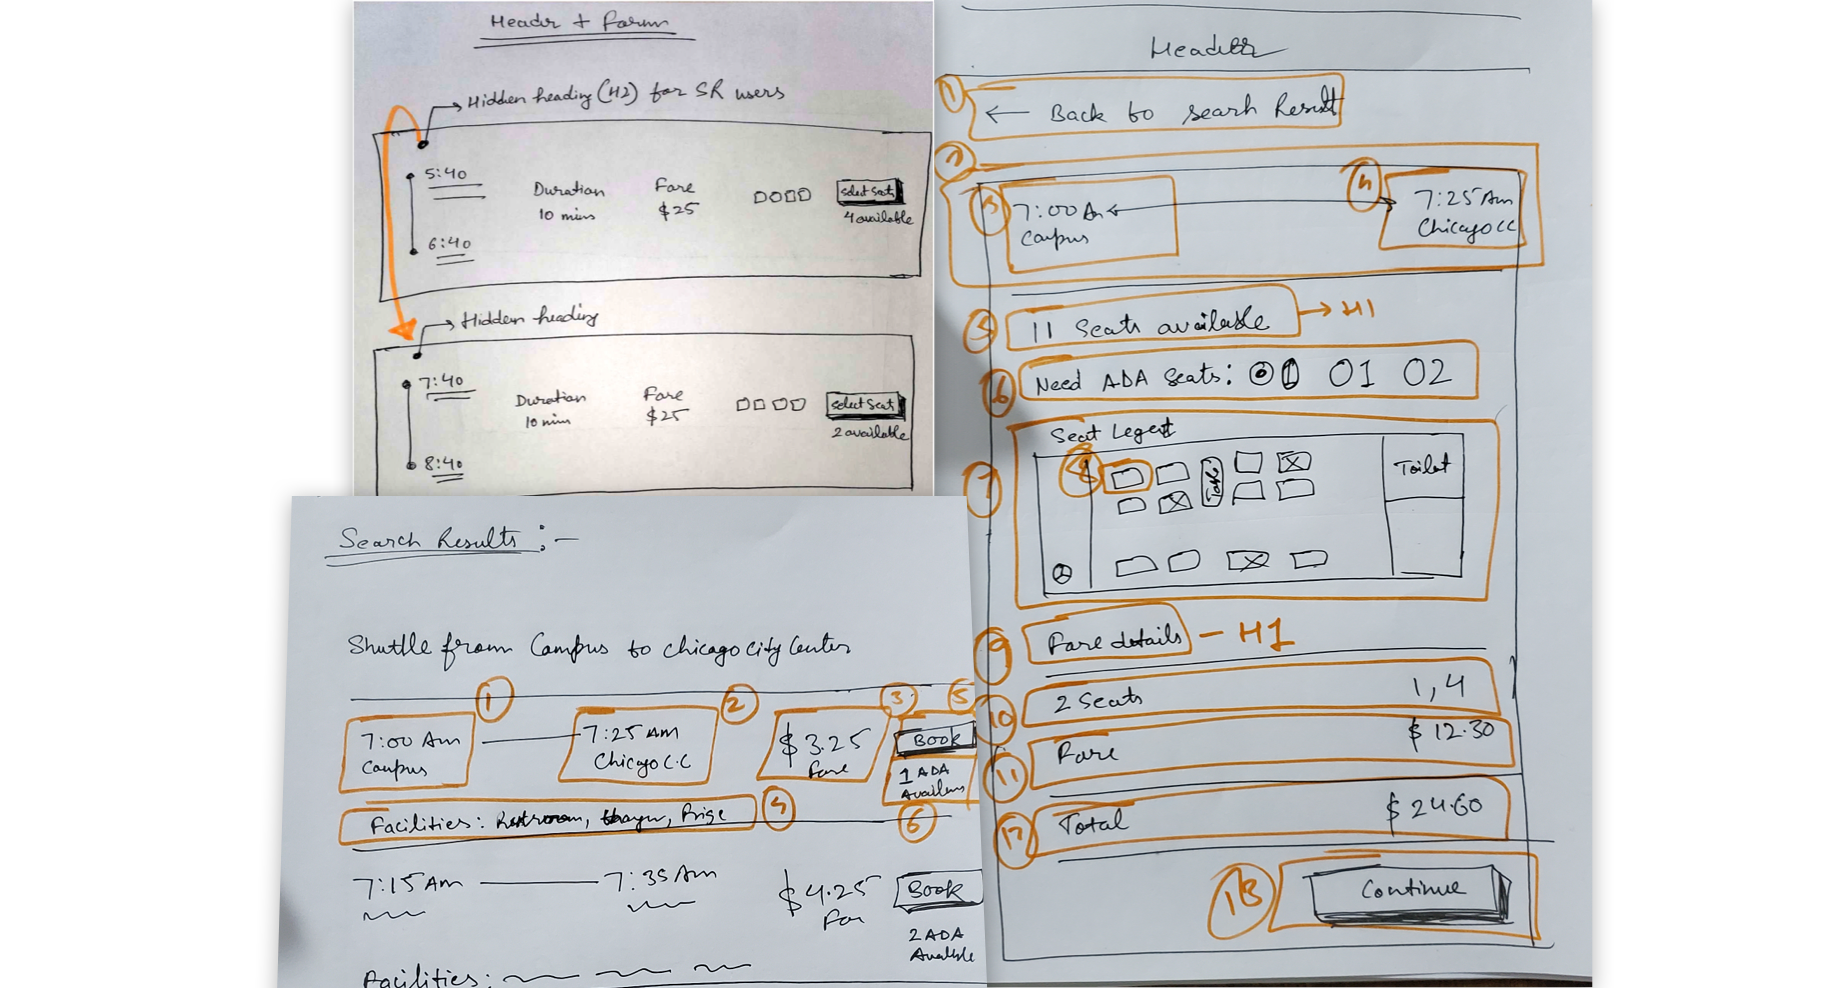 Header + Form
Hidden heading (H2) for SR users
5:40
Duration
10 mins
Fare
$25
Select Seats
4 available
6:40
Hidden heading
7:40
Duration
10 min
Fare
$25
Select Seat
2 available
8:40
Search Results :-
Shuttle from Campus to Chicago City Center
1
2
3
5
7:00 Am
Campus
7:25 AM
Chicago C.C
$3.25
Fare
Book
1 ADA
Facilities: Restroom,
4
6
7:15 Am
7:35 Am
$4.25
Book
2 ADA
Facilities:
Header
1
← Back to search Result
2
3
7:00 Am
Campus
4
7:25 Am
Chicago CC
5
11 Seats available → H1
6
Need ADA Seats: 0 1 2
7
Seat Legend
8
Table
Toilet
9
Fare details - H1
10
2 Seats 1, 4
11
Fare $12.30
12
Total $24.60
13
Continue